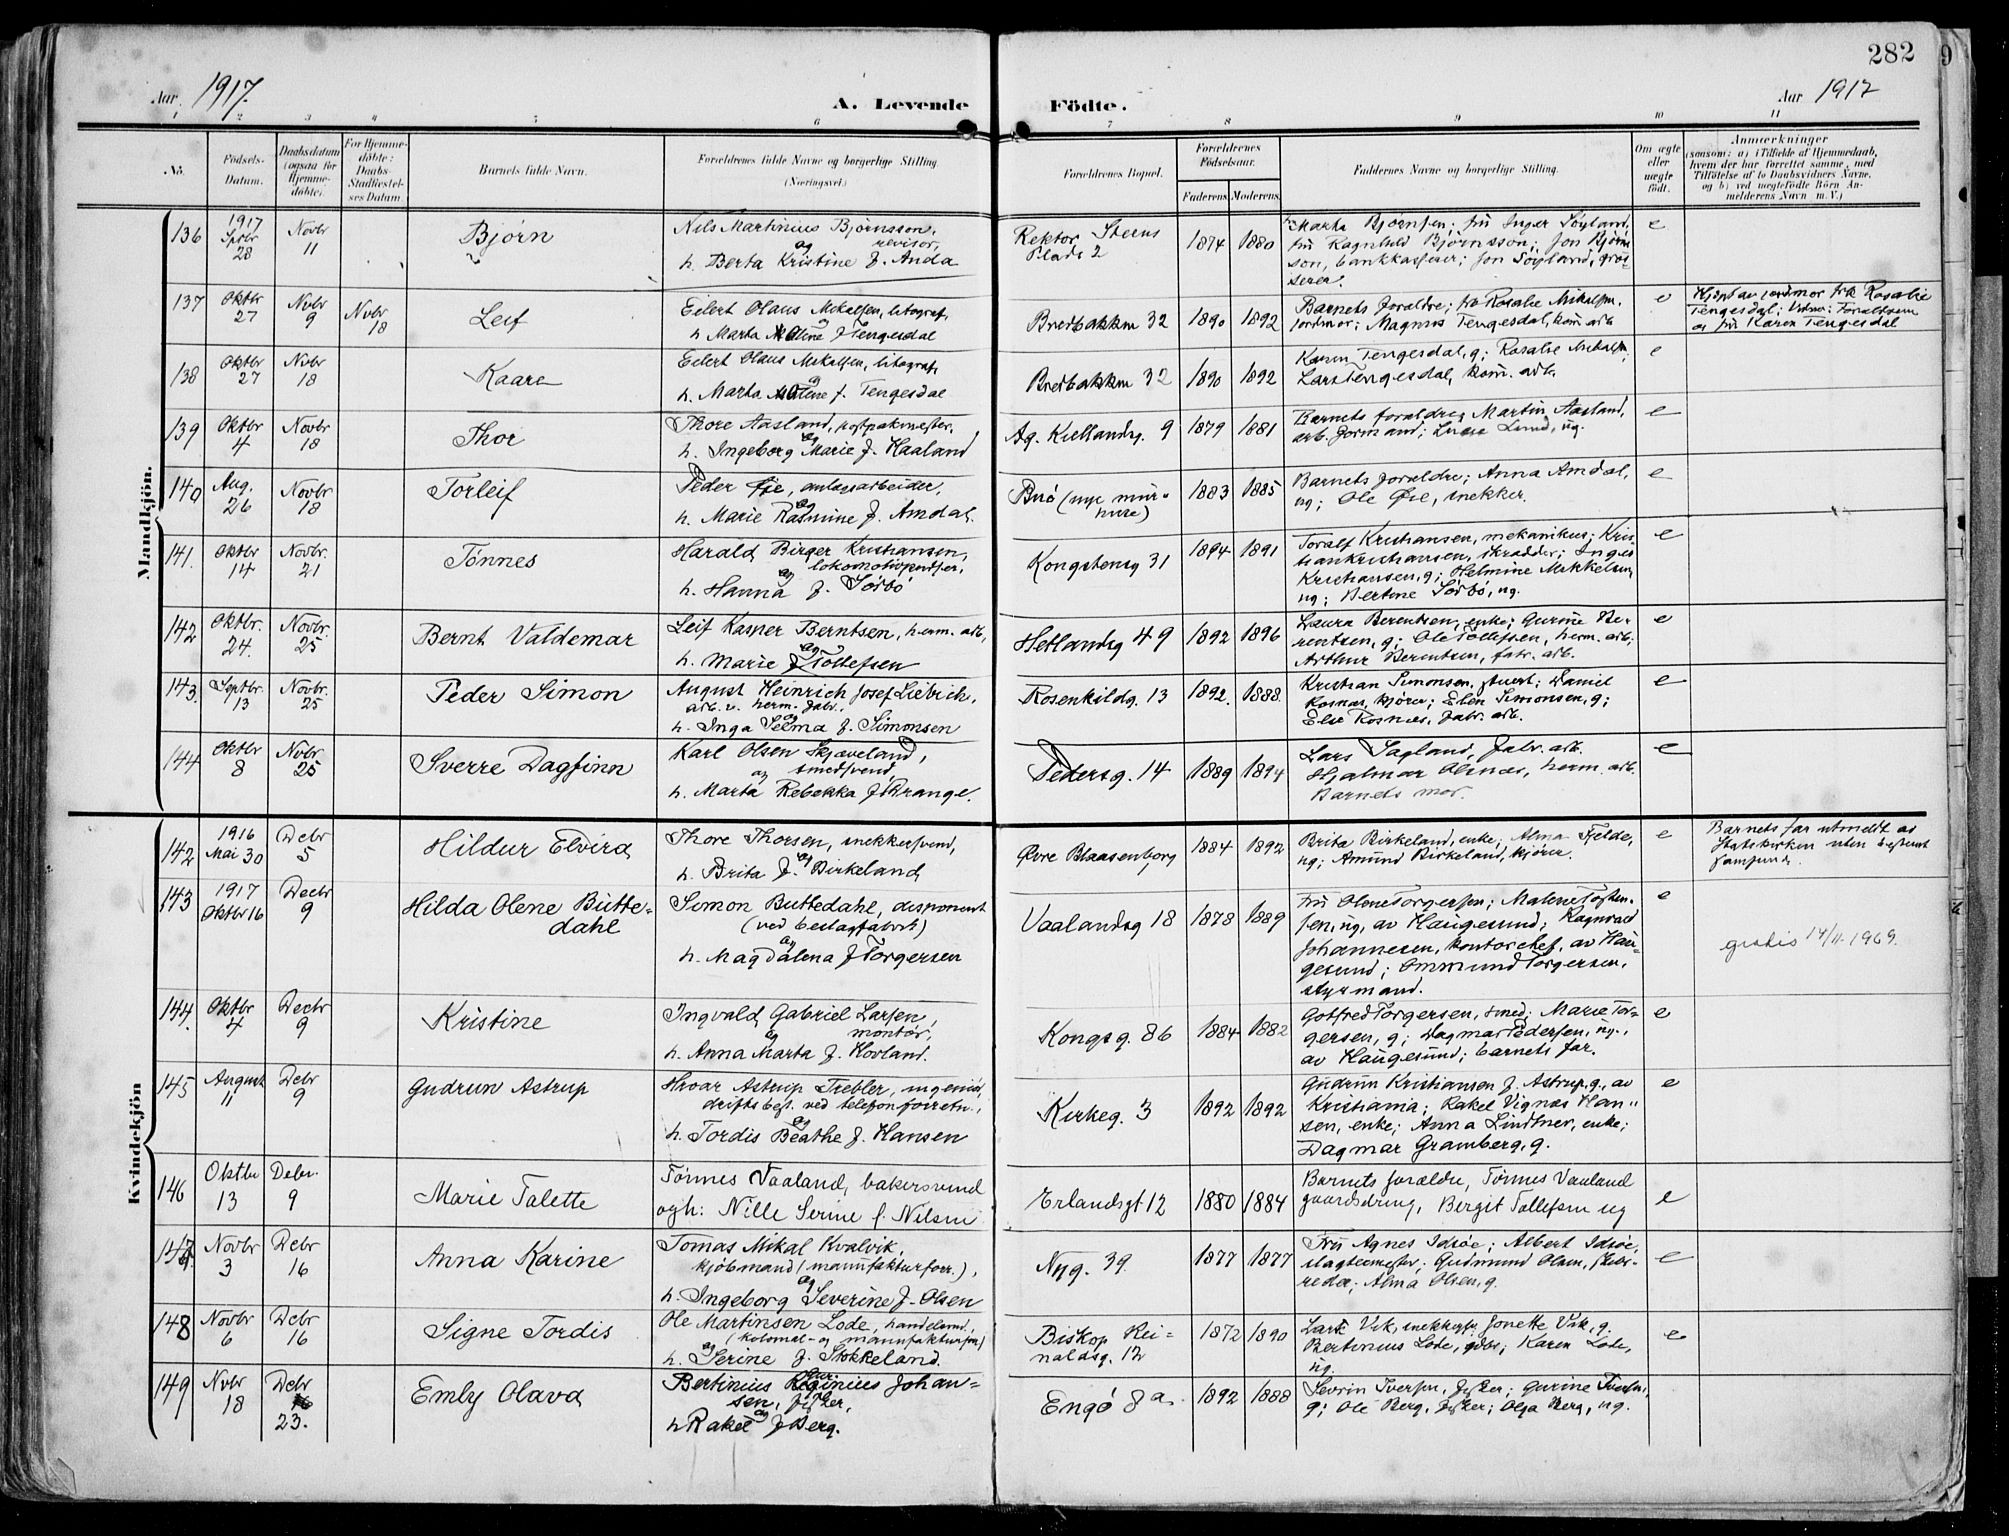 282
9
Aar 1917.
A. Levende
Födte.
Aar 1917
1 2 3 4 5 6 7 8 9 10 11
No.
Födsels-
Datum.
Daabsdatum
(ogsaa for
Hjemme-
döbte).
For Hjemme-
döbte:
Daabs-
Stadfæstel-
ses Datum.
Barnets fulde Navn.
Forældrenes fulde Navne og borgerlige Stilling
(Næringsvei.)
Forældrenes Bopæl.
Forældrenes
Födselsaar.
Faderens.
Moderens.
Faddernes Navne og borgerlige Stilling.
Om ægte
eller
uægte
födt.
Anmærkninger
(saasom: a) i Tilfælde af Hjemmedaab,
hvem der har forrettet samme, med
Tilföielse af to Daabsvidners Navne,
og b) ved uægtefödte Börn An-
melderens Navn m. V.)
Mandkjön.
136
1917
Sptbr
28
Novbr
11
Bjørn
Nils Martinius Bjørnsson,
revisor,
og
h. Berta Kristine f. Anda
Rektor Steens
Plads 2
1874
1880
Marta Bjørnsen; fru Inger Søyland,
fru Ragnhild Bjørnsson; Jon Bjørns
son, bankkasserer; Jon Søyland, gros-
serer.
e
137
Oktbr
27
Novbr
9
Novbr
18
Leif
Eilert Olaus Mikalsen, litograf,
og
h. Marta Malene f Tengesdal
Bredbakken 32
1890
1892
Barnets foraldre; frk Rosalie Mikalsen,
jordmor; Magnus Tengesdal, kom arb
e
Hjdpt av jordmor frk Rosalie
Tengesdal; Vidner: Foraldrene
og fru Karen Tengesdal
138
Oktbr
27
Novbr
18
Kaare
Eilert Olaus Mikalsen, litograf,
og
h. Marta Malene f. Tengesdal
Bredbakken 32
1890
1892
Karen Tengesdal, g; Rosalie Mikalsen,
Lars Tengesdal, kom. arb.
e
139
Oktbr
4
Novbr
18
Thor
Thore Aasland, postpakmester,
og
h. Ingeborg Marie f. Haaland
Ag. Kiellandsg. 9
1879
1881
Barnets foraldre; Martin Aasland,
arb. formand; Lund, ug.
e
140
Aug.
26
Novbr
18
Torleif
Peder Øie, anlægsarbeider,
og
h. Marie Rasmine f. Amdal.
Buø (nye mur-
huse)
1883
1885
Barnets foraldre; Anna Amdal,
ug; Ole Øie, snekker.
e
141.
Oktbr
14
Novbr.
21
Tønnes
Harald Birger Kristiansen,
lokomotivpudser,
og
h. Hanna f. Sørbø
Kongstensg 31
1894
1891
Toralf Kristiansen, mekanikus; Kris
tian Kristiansen, skradder; Inger
Kristiansen, g; Helmine Mikkelsen,
ug; Bertine Sørbø, ug.
e
142
Oktbr.
24.
Novbr.
25
Bernt Valdemar
Leif Kasper Berntsen, herm. arb,
og
h. Marie f Tollefsen
Hetlandsg 49
1892
1896
Laura Berentsen, enke; Gurine Be-
rentsen, g; Ole Tollefsen, herm. arb.
Arthur Berentsen, fabr. arb.
e
143.
Septbr.
13
Novbr.
25
Peder Simon
August Heinrich Josef Liebrich,
arb. v. herm. fabr.,
og
h. Inga Selma f. Simonsen
Rosenkildg. 13
1892.
1888.
Kristian Simonsen, stuert; Daniel
Rosnæs, kjører; Elen Simonsen, g;
Else Rosnæs, fabr. arb.
e
144
Oktbr
8
Novbr.
25
Sverre Dagfinn
Karl Olsen Skjæveland,
smedsvend,
og
h. Marta Rebekka f Prange.
Pedersg. 14
1889
1894
Lars Sagland, fabr. arb.
Hjalmar Olsnæs, herm. arb.
Barnets mor.
e
Kvindekjön
142
1916
Mai 30
Decbr
5
Hildur Elvira
Thore Thorsen, snekkersvend,
og
h. Brita f. Birkeland
Øvre Blaasenborg
1884
1892
Brita Birkeland, enke; Alma Fjelde,
ug; Amund Birkeland, kjører.
e
Barnets far utmeldt av
statskirken uten bestemt
samfund.
143
1917
Oktbr 16
Decbr
9
Hilda Olene Butte-
dahl
Simon Buttedahl, disponent
(ved beslagfabrik)
og
h. Magdalena f Torgersen
Vaalandsg 18
1878
1889
Fru Olene Torgersen; Malene Torsten-
sen, ug, av Haugesund; Ragnvald
Johannesen, kontorchef, av Hau-
gesund; Ommund Torgersen,
styrmand.
e
gratis 14/11.1969.
144.
Oktbr
4
Decbr
9
Kristine
Ingvald Gabriel Larsen,
montør,
og
h. Anna Marta f. Hovland.
Kongsg. 86
1884
1882
Gotfred Torgersen, smed; Marie Tor-
gersen, g; Dagmar Pedersen, ug.,
av Haugesund; barnets far.
e
145
August
11
Decbr
9
Gudrun Astrup
Hroar Astrup Trebler, ingeniør,
driftsbest. ved telefonforretn.,
og
h. Tordis Beathe f. Hansen
Kirkeg. 3
1892
1892
Gudrun Kristiansen f. Astrup, g., av
Kristiania; Rakel Vignæs Han-
sen, enke; Anna Lindtner, enke;
Dagmar Gramberg, g.
e
146
Oktbr
13
Decbr.
9
Marie Talette
Tønnes Vaaland, bakersvend
og h: Nille Serine f. Nilsen
Erlandsgt 12
1880
1884
Barnets foraldre, Tønnes Vaaland
gaardsdreng, Bergit Tollefsen ug
e
147
Novbr
3
Decbr
16
Anna Karine
Tomas Mikal Kvalvik,
kjøbmand (manufakturforr.),
og
h. Ingeborg Severine f. Olsen
Nyg. 39.
1877
1877
Fru Agnes Idsøe; Albert Idsøe,
slagtermester; Gudmund Olsen, skibs-
reder; Alma Olsen, g.
e
148
Novbr
6
Decbr
16
Signe Tordis
Ole Martinsen Lode, handelsmd,
(kolonial- og manufakturforr)
og
h. Serine f. Stokkeland.
Biskop Rei-
naldsg. 12
1872
1890
Lars Vik, snekker, Jonette Vik, g.
Bertinius Lode, gdbr; Karen Lode,
ug.
e
149
Novbr
18
Decbr
16
23.
Emly Olava
Bertinius Reginius Johan-
sen, fisker,
og
h Rakel f Berg.
Engø 8 a.
1892
1888
Sevrin Iversen, fisker; Gurine Iversen,
g; Ole Berg, fisker; Olga Berg, ug.